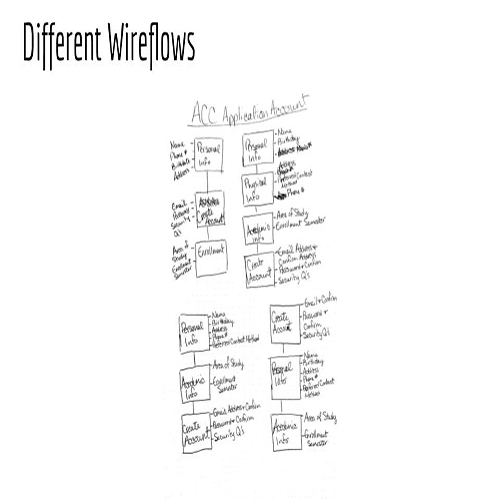 Different Wireflows
ACC Application Account
Name
Phone #
Birthdate
Address
Personal
Info
Email
Password
Security
Q's
Create
Account
Area of
Study
Enrollment
Semester
Enrollment
Personal
Info
Name
Birthday
Physical
Info
Address
Preferred Contact
Method
Phone #
Academic
Info
Area of Study
Enrollment Semester
Create
Account
Email Address +
Confirm Address
Password + Confirm
Security Q's
Personal
Info
Name
Birthday
Address
Phone #
Preferred Contact Method
Academic
Info
Area of Study
Enrollment
Semester
Create
Account
Email Address + Confirm
Password + Confirm
Security Q's
Create
Account
Email + Confirm
Password +
Confirm
Security Q's
Personal
Info
Name
Birthday
Address
Phone #
Preferred Contact
Method
Academic
Info
Area of Study
Enrollment
Semester